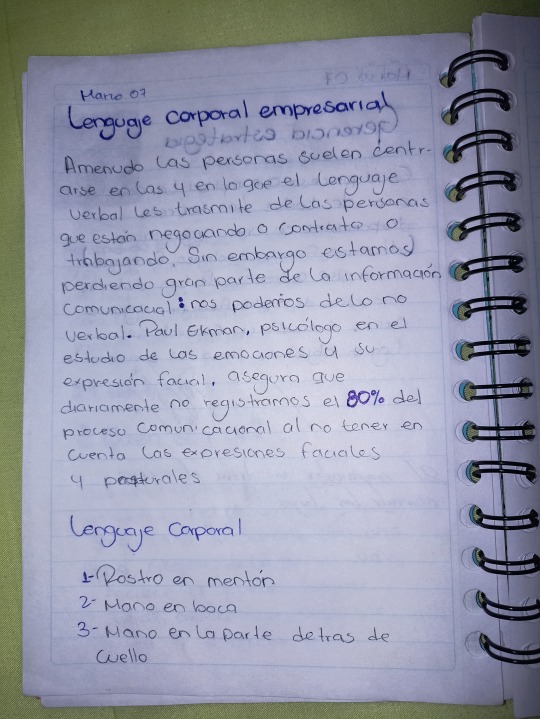 Marzo 07
Lenguaje corporal empresarial
Amenudo las personas suelen centr-
arse en las y en lo que el lenguaje
verbal les trasmite de las personas
que están negociando o contrato o
trabajando. Sin embargo estamos
perdiendo gran parte de la información
comunicacial: nos podemos de lo no
verbal. Paul Ekman, psicólogo en el
estudio de las emociones y su
expresión facial, asegura que
diariamente no registramos el 80% del
proceso comunicacional al no tener en
cuenta las expresiones faciales
y posturales
Lenguaje Corporal
1- Rostro en mentón
2- Mano en boca
3- Mano en la parte detras de
cuello